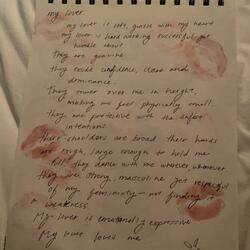 my lover
my lover is soft, gentle with my heart
my lover is hard working successful yet
humble about
they are genuine
they exude confidence, class and
dominance.
They tower over me in height,
making me feel physically small.
they are protective with the safest
intentions.
their shoulders are broad, their hands
are rough, large enough to hold me
they dance with me whenever, wherever
they are strong, masculine yet respectful
of my femininity – not finding it
a weakness
My lover is emotionally expressive
My lover loves me